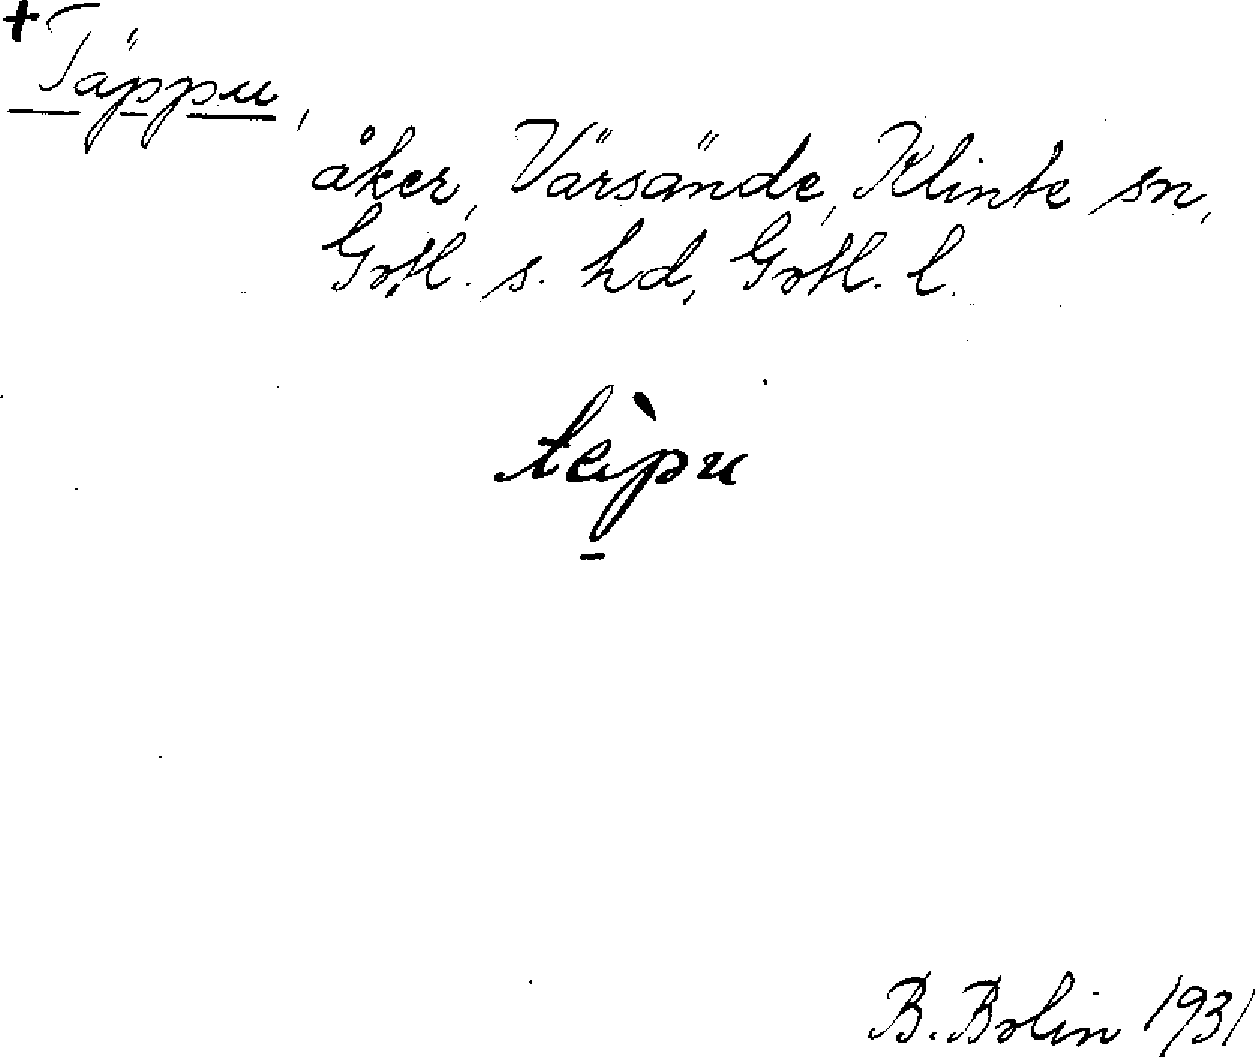 +Täppu,
åker, Värsände, Klinte sn,
Gotl. s. hd, Gotl. l.
tèpu
B. Bolin 1931